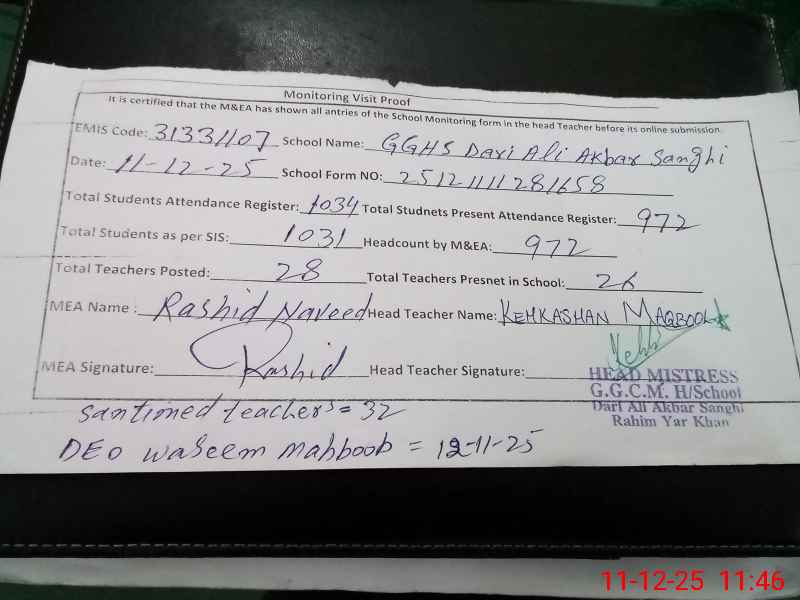 Monitoring Visit Proof
It is certified that the M&EA has shown all antries of the School Monitoring form in the head Teacher before its online submission.
EMIS Code: 31331107 School Name: GGHS Dari Ali Akbar Sanghi
Date: 11-12-25 School Form NO: 25121111281658
Total Students Attendance Register: 1034 Total Studnets Present Attendance Register: 972
Total Students as per SIS: 1031 Headcount by M&EA: 972
Total Teachers Posted: 28 Total Teachers Presnet in School: 26
MEA Name : Rashid Naveed Head Teacher Name: KEHKASHAN MAQBOOL
MEA Signature: Rashid Head Teacher Signature:
HEAD MISTRESS
G.G.C.M. H/School
Dari Ali Akbar Sanghi
Rahim Yar Khan
santioned teachers = 32
DEO waseem mahboob = 12-11-25
11-12-25 11:46